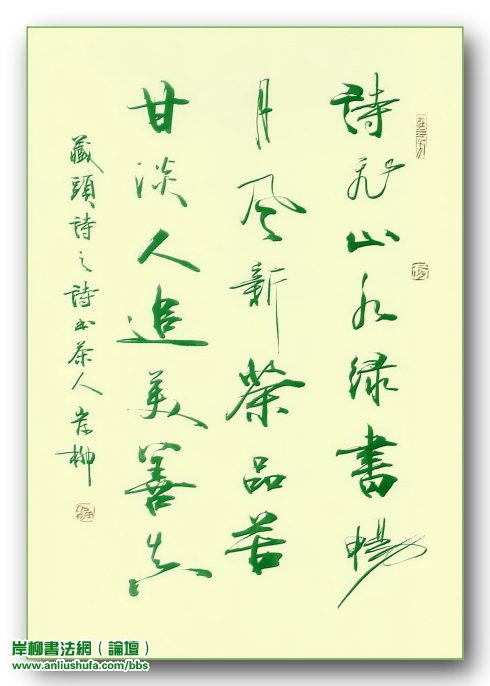 詩山水绿書暢
月風新茶品苦
甘淡人追美善真
藏頭詩之詩书茶人 岸柳
岸柳書法網（論壇）
www.anliushufa.com/bbs